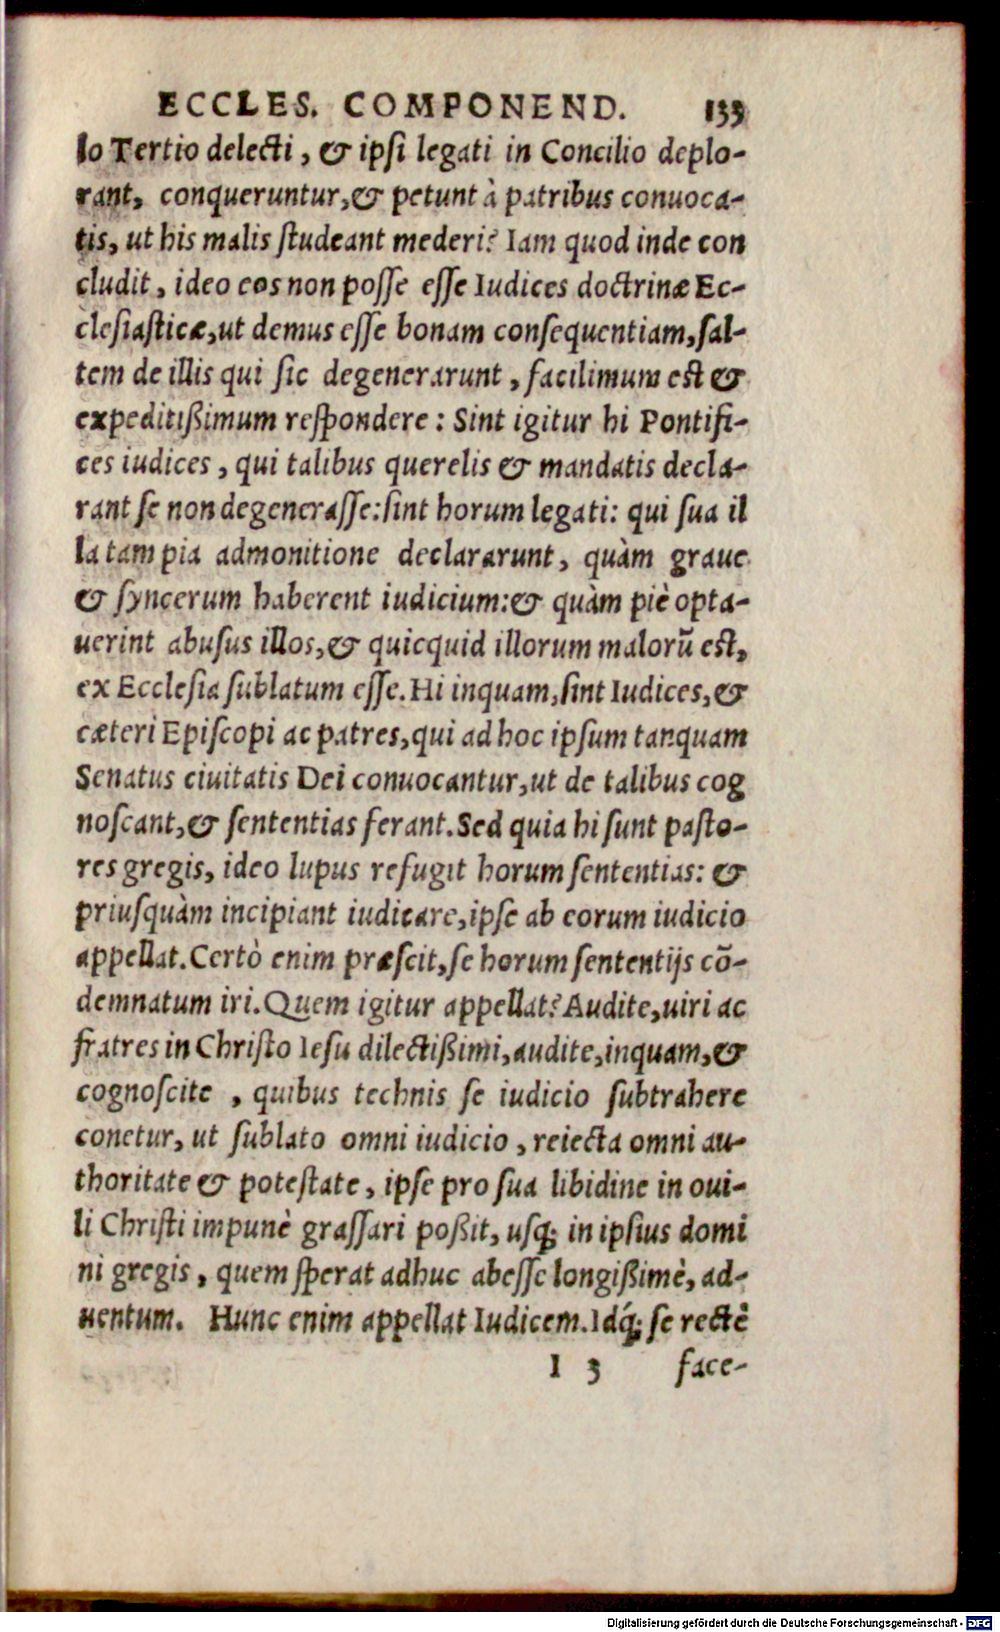 ECCLES. COMPONEND. 133
lo Tertio delecti, & ipſi legati in Concilio deplo-
rant, conqueruntur, & petunt à patribus conuoca-
tis, ut his malis ſtudeant mederi? Iam quod inde con
cludit, ideo eos non poſſe eſſe Iudices doctrinæ Ec-
cleſiaſticæ, ut demus eſſe bonam conſequentiam, ſal-
tem de illis qui ſic degenerarunt, facilimum eſt &
expeditißimum reſpondere: Sint igitur hi Pontifi-
ces iudices, qui talibus querelis & mandatis decla-
rant ſe non degeneraſſe: ſint horum legati: qui ſua il
la tam pia admonitione declararunt, quàm graue
& ſyncerum haberent iudicium: & quàm piè opta-
uerint abuſus illos, & quicquid illorum malorũ eſt,
ex Eccleſia ſublatum eſſe. Hi inquam, ſint Iudices, &
cæteri Epiſcopi ac patres, qui ad hoc ipſum tanquam
Senatus ciuitatis Dei conuocantur, ut de talibus cog
noſcant, & ſententias ferant. Sed quia hi ſunt paſto-
res gregis, ideo lupus refugit horum ſententias: &
priuſquàm incipiant iudicare, ipſe ab eorum iudicio
appellat. Certò enim præſcit, ſe horum ſententijs cō-
demnatum iri. Quem igitur appellat? Audite, uiri ac
fratres in Chriſto Ieſu dilectißimi, audite, inquam, &
cognoſcite, quibus technis ſe iudicio ſubtrahere
conetur, ut ſublato omni iudicio, reiecta omni au-
thoritate & poteſtate, ipſe pro ſua libidine in oui-
li Chriſti impunè graſſari poßit, uſq; in ipſius domi
ni gregis, quem ſperat adhuc abeſſe longißimè, ad-
uentum. Hunc enim appellat Iudicem. Idq́; ſe rectè
I 3 face-
Digitalisierung gefördert durch die Deutsche Forschungsgemeinschaft - DFG